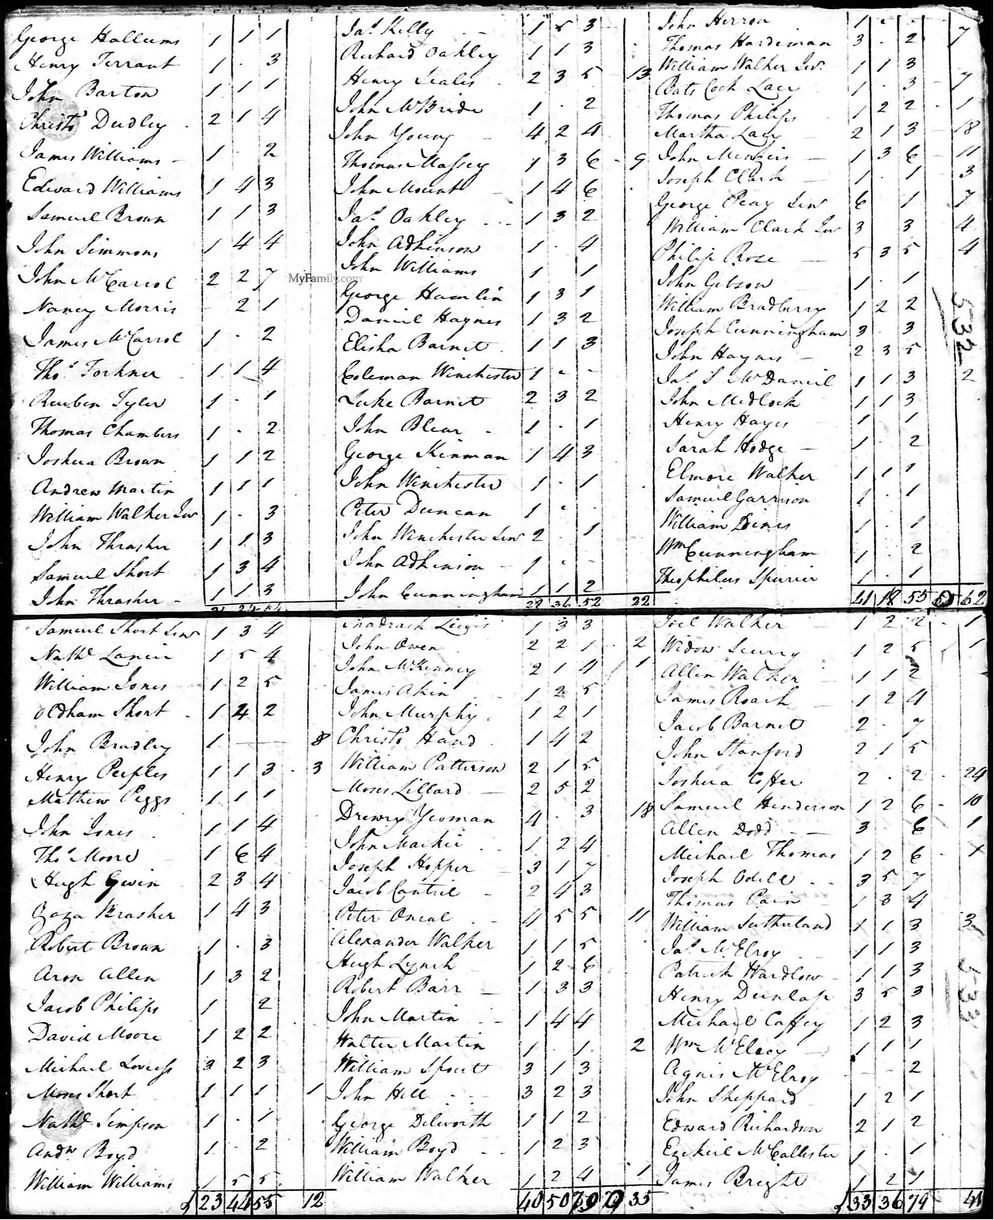 George Hallums 1 1 1
Henry Terrant 1 . 3
John Barton 1 1 1
Christo Dudley 2 1 4
James Williams 1 . 2
Edward Williams 1 4 3
Samuel Brown 1 1 3
John Simmons 1 4 4
John McCarrol 2 2 7
Nancy Morris - 2 1
James McCarrol 1 . 2
Thos. Forkner 1 1 4
Reuben Tyler 1 . 1
Thomas Chambers 1 . 2
Joshua Brown 1 1 2
Andrew Martin 1 1 1
William Walker Senr 1 . 3
John Thrasher 1 1 3
Samuel Short 1 3 4
John Thrasher 1 1 3
Jas. Kelly 1 5 3
Richard Oakley 1 1 3
Henry Seales 2 3 5 - 13
John McBride 1 . 2
John Young 4 2 4
Thomas Massey 1 3 6 - 9
John Mount 1 4 6
Jas. Oakley 1 3 2
John Adkinson 1 . 4
John Williams 1 1
MyFamily.com
George Hamlin 1 3 1
Daniel Haynes 1 3 2
Elisha Barnet 1 1 3
Coleman Winchester 1 - -
Luke Barnet 2 3 2
John Blear 1 . 1
George Kinman 1 4 3
John Winchester 1 . 1
Peter Duncan 1 - .
John Winchester Senr 2 1
John Adkinson 1 - -
John Cunningham 1 1 2
28 36 52 22
John Herron 1 . .
Thomas Hardiman 3 . 2 7
William Walker Senr 1 1 3
Bate Cock Lacy 1 . 3 7
Thomas Philips 1 2 2 - 1
Martha Lacy 2 1 3 - 18
John Menkis 1 3 6 - 11
Joseph Clark 1 . 1 3
George Peay Senr 6 1 7
William Clark Senr 3 3 4
Philip Rose 5 3 5 4
John Gibson 1 . 1
William Bradberry 1 2 2
Joseph Cunningham 3 . 3
532
John Haynes 2 3 5
Jas. S McDaniel 1 1 3 2
John Medlock 1 1 3
Henry Hayes 1 . 1
Sarah Hodge - 1 . 2
Elmore Walker 1 1 1
Samuel Garrison 1 . 1
William Denis 1 . 1
Wm Cunningham 1 . 2
Theophilus Spurier 1 . 1
41 18 55 62
Samuel Short Senr 1 3 4
Nathl. Lanier 1 5 4
William Jones 1 2 5
Oldham Short 1 4 2
John Bradley 1 — 8
Henry Peeples 1 1 3 . 3
Mathew Peggs 1 1 1
John Jones 1 1 4
Thos. Moore 1 6 4
Hugh Gwin 2 3 4
Zaza Brasher 1 4 3
Robert Brown 1 . 3
Aron Allen 1 3 2
Jacob Philips 1 2
David Moore 1 2 2
Michael Loveless 3 2 3
Moses Short 1 1 1 1
Nathl. Simpson 1 . 1
Andw. Boyd 1 . 2
William Williams 1 5 5
23 44 55 12
Shadrach Liegis 1 3 3
John Owen 2 2 1 2
John McKinney 2 1 4 1
James Akin 1 2 5
John Murphy 1 2 1
Christo Hand 1 4 2
William Patterson 2 1 5
Moses Lillard 2 5 2
Drewry Yeoman 4 . 3 18
John Mackie 1 2 4
Joseph Hopper 3 1 7
Jacob Cantrel 2 4 3
Peter Oneal 4 5 5 11
Alexander Walker 1 1 5
Hugh Lynch 1 2 6
Robert Barr 1 3 3
John Martin 1 4 4
Walter Martin 1 . 1 . 2
William Spout 3 1 3
John Hill 3 2 3
George Dilworth 1 1 2
William Boyd 1 2 3
William Walker 1 2 4 1
40 50 79 35
Joel Walker 1 2 2 - 1
Widow Scurry 1 2 5 1
Allen Walker 1 1 2
James Roach 1 2 4
Jacob Barnet 2 . 7
John Stanford 2 1 5
Joshua Coffee 2 . 2 . 24
Samuel Henderson 1 2 6 - 10
Allen Dodd 3 . 6 1
Michael Thomas 1 2 6 . 1
Joseph Odell 3 5 7
Thomas Cain 1 3 4
William Sutherland 1 1 3 3
Jas. McElroy 1 1 3
Patrick Hardlow 1 1 3
533
Henry Dunlap 3 5 3
Michael Caffey 1 2 3
Wm McElroy 1 1 1
Agnis McElroy - - 2
John Sheppard 1 2 1
Edward Richardson 2 1 2
Ezekiel McCallister 1 . 1
James Bright 1 2 1
33 36 79 41